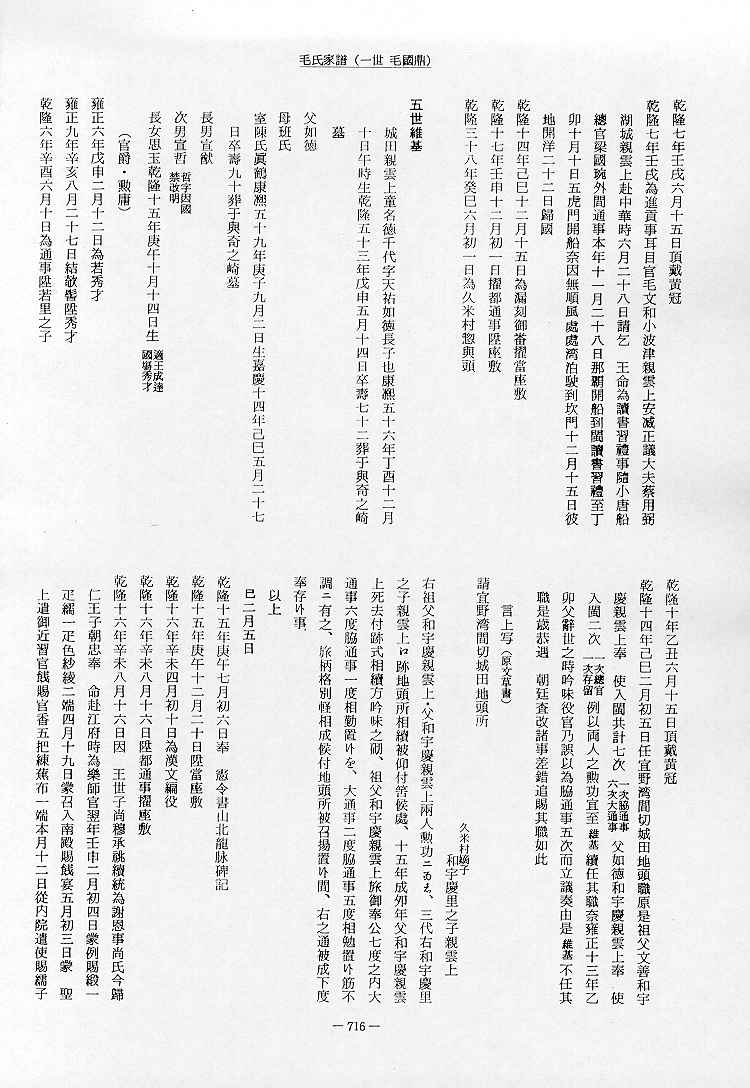 毛氏家譜（一世 毛國鼎）
乾隆七年壬戌六月十五日頂戴黃冠
乾隆七年壬戌為進貢事耳目官毛文和小波津親雲上安滅正議大夫蔡用弼
湖城親雲上赴中華時六月二十八日請乞　王命為讀書習禮事隨小唐船
總官梁國琬外間通事本年十一月二十八日那覇開船到閩讀書習禮至丁
卯十月十日五虎門開船奈因無順風處處湾泊駛到坎門十二月十五日彼
地開洋二十二日歸國
乾隆十四年己巳十二月十五日為漏刻御番擢當座敷
乾隆十七年壬申十二月初一日擢都通事陞座敷
乾隆三十八年癸巳六月初一日為久米村惣與頭
五世維基
城田親雲上童名徳千代字天祐如徳長子也康熙五十六年丁酉十二月
十日午時生乾隆五十三年戊申五月十四日卒壽七十二葬于與奇之崎
墓
父如德
母班氏
室陳氏眞鶴康熙五十九年庚子九月二日生嘉慶十四年己巳五月二十七
日卒壽九十葬于與奇之崎墓
長男宣猷
次男宣哲 哲字因國禁改明
長女思玉乾隆十五年庚午十月十四日生 適王成達國場秀才
（官爵・勲庸）
雍正六年戊申二月十二日為若秀才
雍正九年辛亥八月二十七日結敬髻陞秀才
乾隆六年辛酉六月十日為通事陞若里之子
乾隆十年乙丑六月十五日頂戴黃冠
乾隆十四年己巳二月初五日任宜野湾間切城田地頭職原是祖父文善和宇
慶親雲上奉　使入閩共計七次 一次脇通事六次大通事 父如德和宇慶親雲上奉　使
入閩二次 一次總官一次存留 例以両人之勲功宜至維基續任其職奈雍正十三年乙
卯父辭世之時吟味役官乃誤以為脇通事五次而立議奏由是維基不任其
職是歳恭遇　朝廷査改諸事差錯追賜其職如此
請宜野湾間切城田地頭所
言上写（原文草書）
久米村嫡子
和宇慶里之子親雲上
右祖父和宇慶親雲上・父和宇慶親雲上兩人勲功ニゟゑ、三代右和宇慶里
之子親雲上ロ跡地頭所相續被仰付筈候處、十五年成卯年父和宇慶親雲
上死去付跡式相續方吟味之砌、祖父和宇慶親雲上旅御奉公七度之内大
通事六度脇通事一度相勤置㕝を、大通事二度脇通事五度相勉置㕝筋不
調ニ有之、旅柄格別軽相成候付地頭所被召揚置㕝間、右之通被成下度
奉存㕝事
以上
巳二月五日
乾隆十五年庚午七月初六日奉　憲令書山北龍脉碑記
乾隆十五年庚午十二月二十日陞當座敷
乾隆十六年辛未四月初十日為漢文編役
乾隆十六年辛未八月十六日陞都通事擢座敷
乾隆十六年辛未八月十六日因　王世子尚穆承祧續統為謝恩事尚氏今歸
仁王子朝忠奉　命赴江府時為樂師官翌年壬申二月初四日蒙例賜緞一
疋繻一疋色紗綾二端四月十九日蒙召入南殿賜餞宴五月初三日蒙　聖
上遣御近習官餞賜官香五把練蕉布一端本月十二日從内院遣使賜繻子
— 716 —